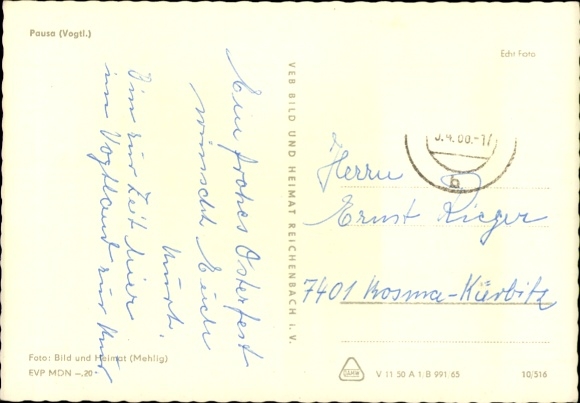 Pausa (Vogtl.)
Echt Foto
Ein frohes Osterfest
wünscht Euch
Kurt.
Bin zur Zeit hier
im Vogtland zur Kur
VEB BILD UND HEIMAT REICHENBACH i. V.
Herrn
Ernst Rieger
7401 Kosma-Kürbitz
b
Foto: Bild und Heimat (Mehlig)
EVP MDN -.20
V 11 50 A 1; B 991/65
10/516